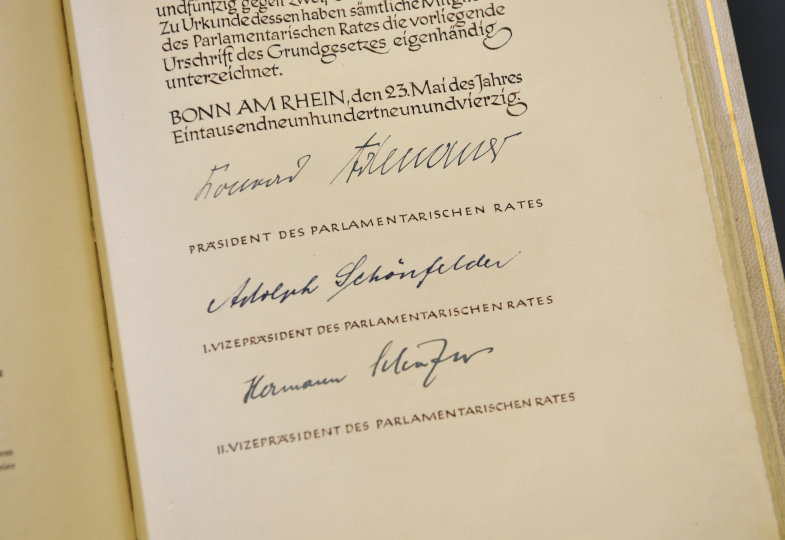 undfünfzig gegen zwölf
Zu Urkunde dessen haben sämtliche Mitglie
des Parlamentarischen Rates die vorliegende
Urschrift des Grundgesetzes eigenhändig
unterzeichnet.
BONN AM RHEIN, den 23. Mai des Jahres
Eintausendneunhundertneunundvierzig
Konrad Adenauer
PRÄSIDENT DES PARLAMENTARISCHEN RATES
Adolph Schönfelder
I. VIZEPRÄSIDENT DES PARLAMENTARISCHEN RATES
Hermann Schäfer
II. VIZEPRÄSIDENT DES PARLAMENTARISCHEN RATES